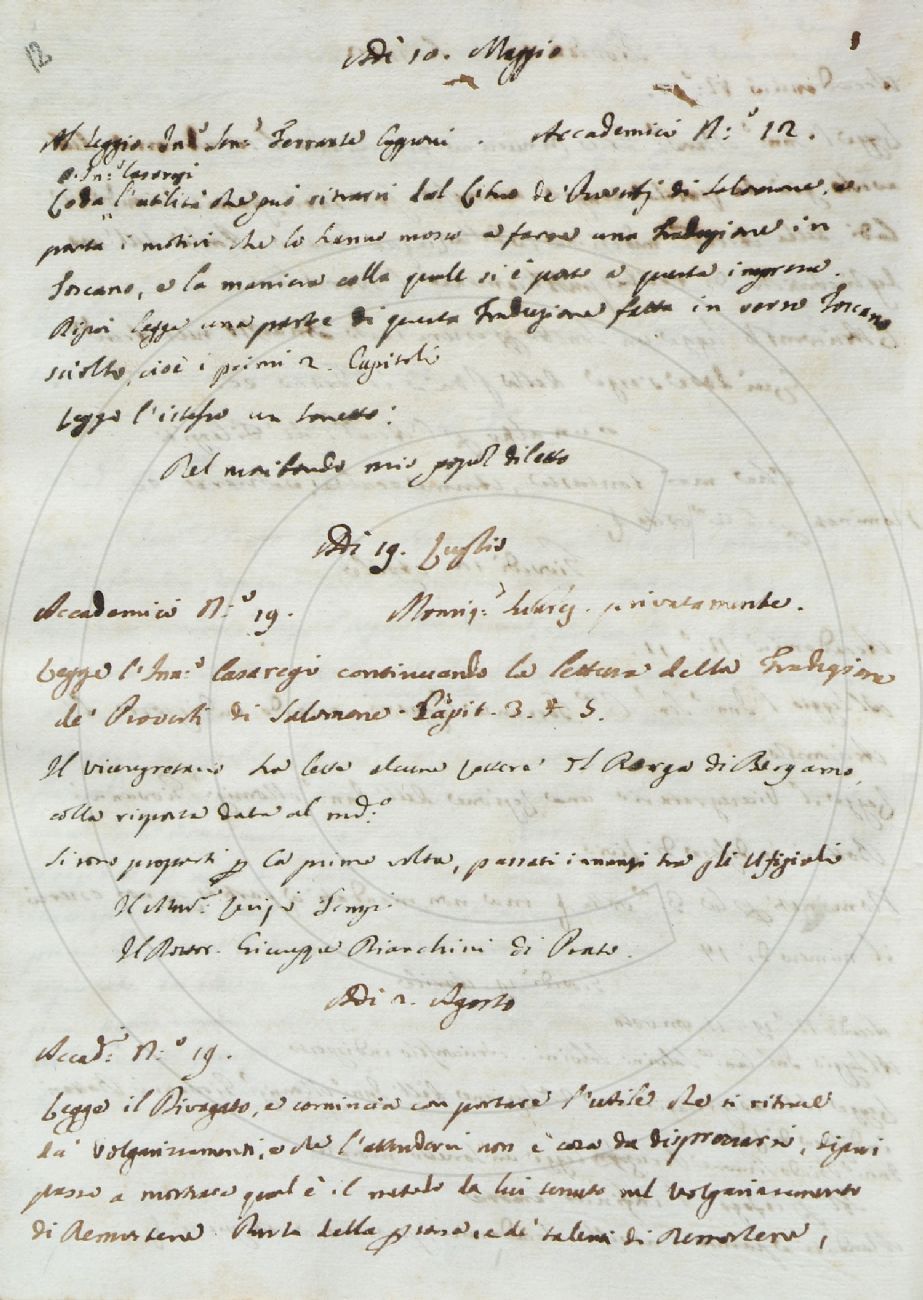 12
Adì 10. Maggio
Al Leggio In.º Sen.ʳ Ferrante Capponi. Accademici N.º 12.
o In.º Casaregi
Loda l'utilità che può ritrarsi dal Libro de' Proverbj di Salomone, e
porta i motivi che lo hanno mosso a farne una Traduzione in
Toscano, e la maniera colla quale si è posto a questa impresa.
Dipoi legge una parte di questa Traduzione fatta in verso Toscano
sciolto, cioè i primi 2. Capitoli
Legge l'istesso un Sonetto:
Nel moribondo mio popol diletto
Adì 19. Luglio
Accademici N.º 19. privatamente.
Legge l'Inn.º Casaregi continuando la lettura della Traduzione
de' Proverbi di Salomone. Capit. 3. 4. 5.
Il Vicesegretario ha letta alcune lettere di Bergamo,
colla risposta data al md.º
Si sono proposti p la prima volta, passati innanzi tra gli Ufiziali
Il March. Luigi Tempi.
Il Dottor. Giuseppe Bianchini di Prato.
Adì 2. Agosto
Accad.ⁱ N.º 19.
Legge il Divagato, e comincia con portare l'utile che si ritrae
da' volgarizzamenti, e che l'attendervi non è cosa da disprezzarsi, dipoi
passa a mostrare qual è il metodo da lui tenuto nel volgarizzamento
di Demostene. Parla della psona, e de' talenti di Demostene,